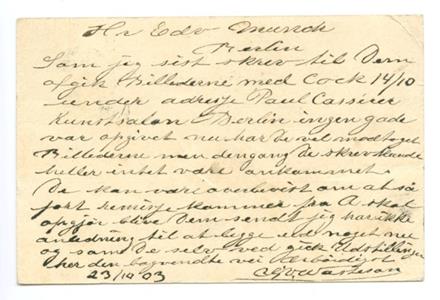 Hr Edv Munch
Berlin
Som jeg sist skrev til Dem
afgik Billederne med Cook 14/10
under adresse Paul Cassirer
Kunstsalon Berlin ingen gade
var opgivet nu har De vel modtaget
Billederne men dengang De skrev skunde
heller intet være ankommet.
De kan være overbevist om at så
fort remisse kommer fra A skal
opgjør blive Dem sendt jeg har ikke
anledning til at lægge ud noget nu
og som De selv ved gick Udstillingen
her den bagvendte vei Ærbödigst
23/10 03